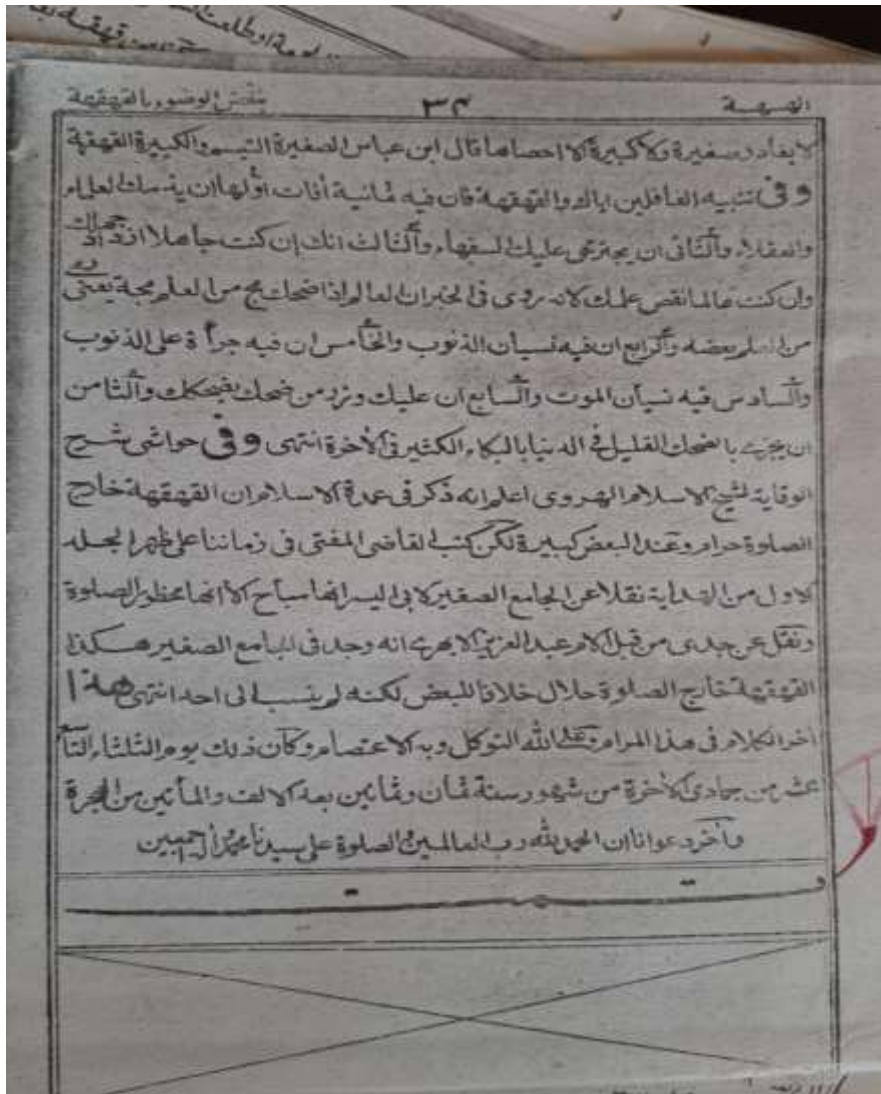 الهسهسة ٣٤ بنقض الوضوء بالقهقهة
لا يغادر صغيرة ولا كبيرة الا احصاها قال ابن عباس الصغيرة التبسم والكبيرة القهقهة
وفى تنبيه الغافلين اياك والقهقهة فان فيه ثمانية أفات اولها ان يذمك العلماء
والعقلاء والثانى ان يجترئ عليك السفهاء والثالث انك ان كنت جاهلا ازداد جهلك
وان كنت عالما نقص علمك لانه روى فى الخبر ان العالم اذا ضحك مج من العلم مجة يعنى رمى
من العلم بعضه والرابع ان فيه نسيان الذنوب والخامس ان فيه جرأة على الذنوب
والسادس فيه نسيان الموت والسابع ان عليك وزر من ضحك بضحكك والثامن
ان يجزى بالضحك القليل فى الدنيا بالبكاء الكثير فى الأخرة انتهى وفى حواشى شرح
الوقاية لشيخ الاسلام الهروى اعلم انه ذكر فى عمدة الاسلام ان القهقهة خارج
الصلوة حرام وعند البعض كبيرة لكن كتب القاضى المفتى فى زماننا على ظهر الجلد
الاول من الهداية نقلا عن الجامع الصغير لابى اليسر انها مباح الا انها محظور الصلوة
ونقل عن جدى من قبل الام عبد العزيز الابهرى انه وجد فى الجامع الصغير هكذا
القهقهة خارج الصلوة حلال خلافا للبعض لكنه لم ينسب الى احد انتهى هذا
أخر الكلام فى هذا المرام وعلى الله التوكل وبه الاعتصام وكان ذلك يوم الثلثاء
عشر من جمادى الأخرة من شهور سنة ثمان وثمانين بعد الالف والمأتين من الهجرة
وأخر دعوانا ان الحمد لله رب العالمين والصلوة على سيدنا محمد وأله اجمعين